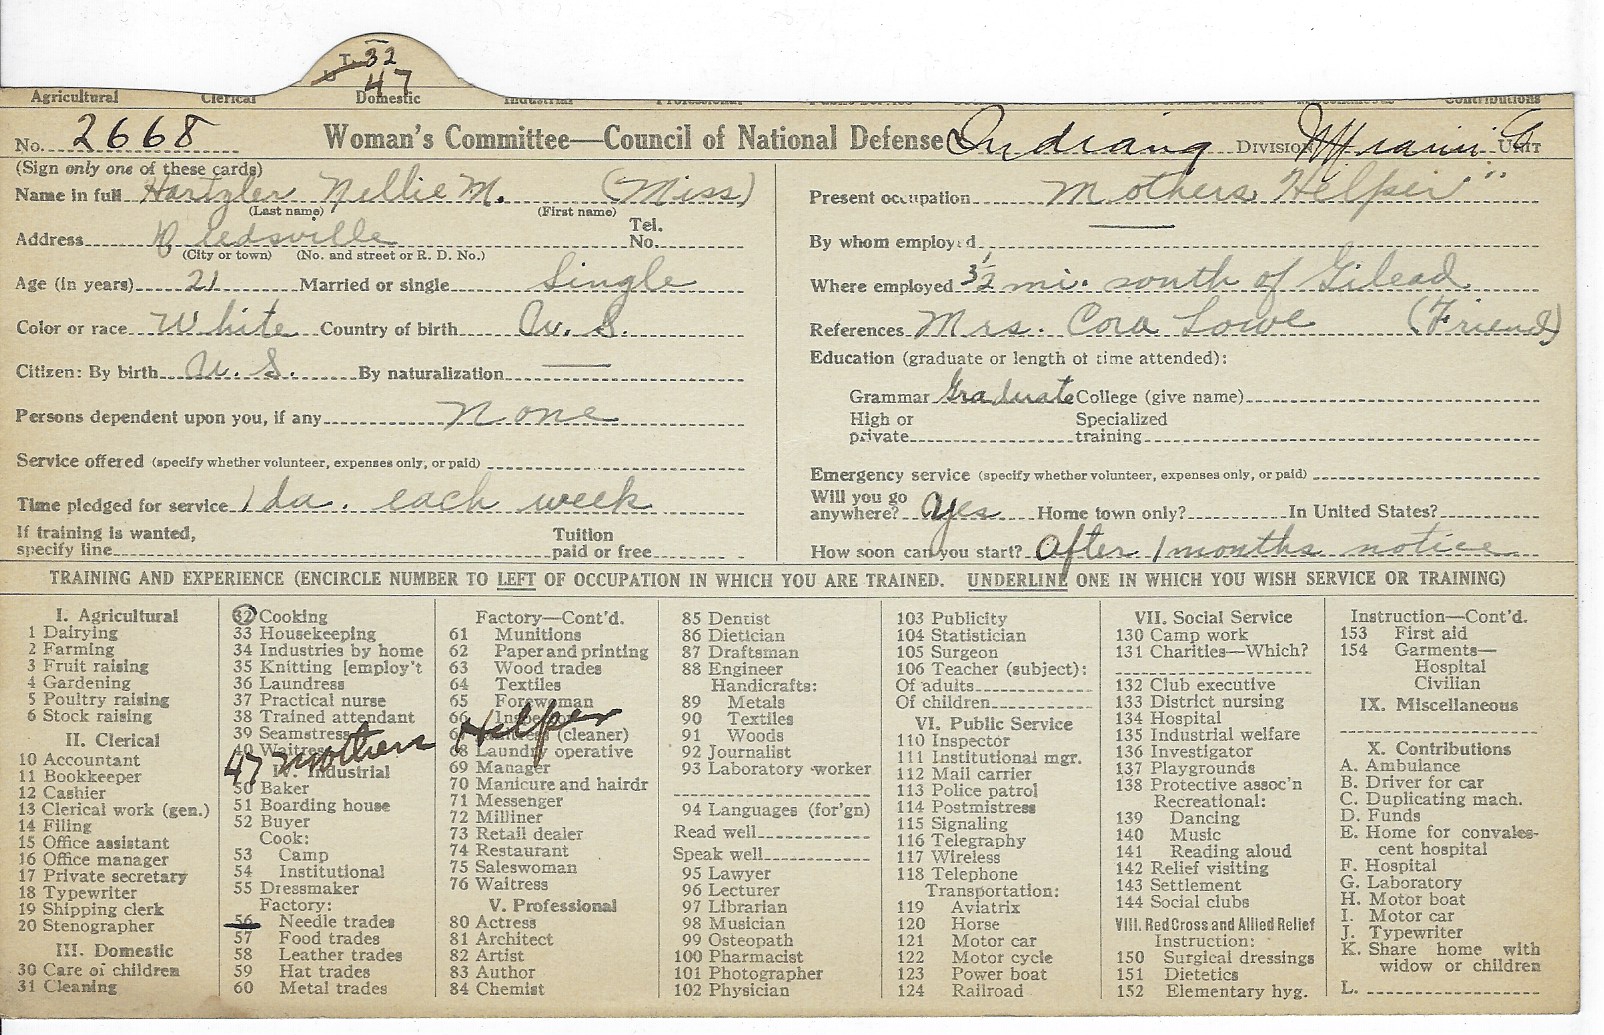 T. 32
47
Agricultural Clerical Domestic Industrial Professional Public Service Miscellaneous Contributions
No. 2668 Woman's Committee—Council of National Defense Indiana Division Miami Co Unit
(Sign only one of these cards)
Name in full Hartzler Nellie M. (Miss)
(Last name) (First name)
Address Reedsville Tel. No.
(City or town) (No. and street or R. D. No.)
Age (in years) 21 Married or single Single
Color or race White Country of birth U. S.
Citizen: By birth U. S. By naturalization —
Persons dependent upon you, if any None
Service offered (specify whether volunteer, expenses only, or paid)
Time pledged for service 1 da. each week
If training is wanted, specify line Tuition paid or free
Present occupation Mothers "Helper"
By whom employed
Where employed 3 1/2 mi. south of Gilead
References Mrs. Cora Lowe (Friend)
Education (graduate or length of time attended):
Grammar Graduate College (give name)
High or private Specialized training
Emergency service (specify whether volunteer, expenses only, or paid)
Will you go anywhere? Yes Home town only? In United States?
How soon can you start? After 1 months notice
TRAINING AND EXPERIENCE (ENCIRCLE NUMBER TO LEFT OF OCCUPATION IN WHICH YOU ARE TRAINED. UNDERLINE ONE IN WHICH YOU WISH SERVICE OR TRAINING)
I. Agricultural
1 Dairying
2 Farming
3 Fruit raising
4 Gardening
5 Poultry raising
6 Stock raising
II. Clerical
10 Accountant
11 Bookkeeper
12 Cashier
13 Clerical work (gen.)
14 Filing
15 Office assistant
16 Office manager
17 Private secretary
18 Typewriter
19 Shipping clerk
20 Stenographer
III. Domestic
30 Care of children
31 Cleaning
32 Cooking
33 Housekeeping
34 Industries by home
35 Knitting [employ't
36 Laundress
37 Practical nurse
38 Trained attendant
39 Seamstress
40 Waitress
47 Mothers Helper
IV. Industrial
50 Baker
51 Boarding house
52 Buyer
Cook:
53 Camp
54 Institutional
55 Dressmaker
Factory:
56 Needle trades
57 Food trades
58 Leather trades
59 Hat trades
60 Metal trades
Factory—Cont'd.
61 Munitions
62 Paper and printing
63 Wood trades
64 Textiles
65 Forewoman
66 Inspector
67 (cleaner)
68 Laundry operative
69 Manager
70 Manicure and hairdr
71 Messenger
72 Milliner
73 Retail dealer
74 Restaurant
75 Saleswoman
76 Waitress
V. Professional
80 Actress
81 Architect
82 Artist
83 Author
84 Chemist
85 Dentist
86 Dietician
87 Draftsman
88 Engineer
Handicrafts:
89 Metals
90 Textiles
91 Woods
92 Journalist
93 Laboratory worker
94 Languages (for'gn)
Read well
Speak well
95 Lawyer
96 Lecturer
97 Librarian
98 Musician
99 Osteopath
100 Pharmacist
101 Photographer
102 Physician
103 Publicity
104 Statistician
105 Surgeon
106 Teacher (subject):
Of adults
Of children
VI. Public Service
110 Inspector
111 Institutional mgr.
112 Mail carrier
113 Police patrol
114 Postmistress
115 Signaling
116 Telegraphy
117 Wireless
118 Telephone
Transportation:
119 Aviatrix
120 Horse
121 Motor car
122 Motor cycle
123 Power boat
124 Railroad
VII. Social Service
130 Camp work
131 Charities—Which?
132 Club executive
133 District nursing
134 Hospital
135 Industrial welfare
136 Investigator
137 Playgrounds
138 Protective assoc'n
Recreational:
139 Dancing
140 Music
141 Reading aloud
142 Relief visiting
143 Settlement
144 Social clubs
VIII. Red Cross and Allied Relief
Instruction:
150 Surgical dressings
151 Dietetics
152 Elementary hyg.
Instruction—Cont'd.
153 First aid
154 Garments—
Hospital
Civilian
IX. Miscellaneous
X. Contributions
A. Ambulance
B. Driver for car
C. Duplicating mach.
D. Funds
E. Home for convales-
cent hospital
F. Hospital
G. Laboratory
H. Motor boat
I. Motor car
J. Typewriter
K. Share home with
widow or children
L.